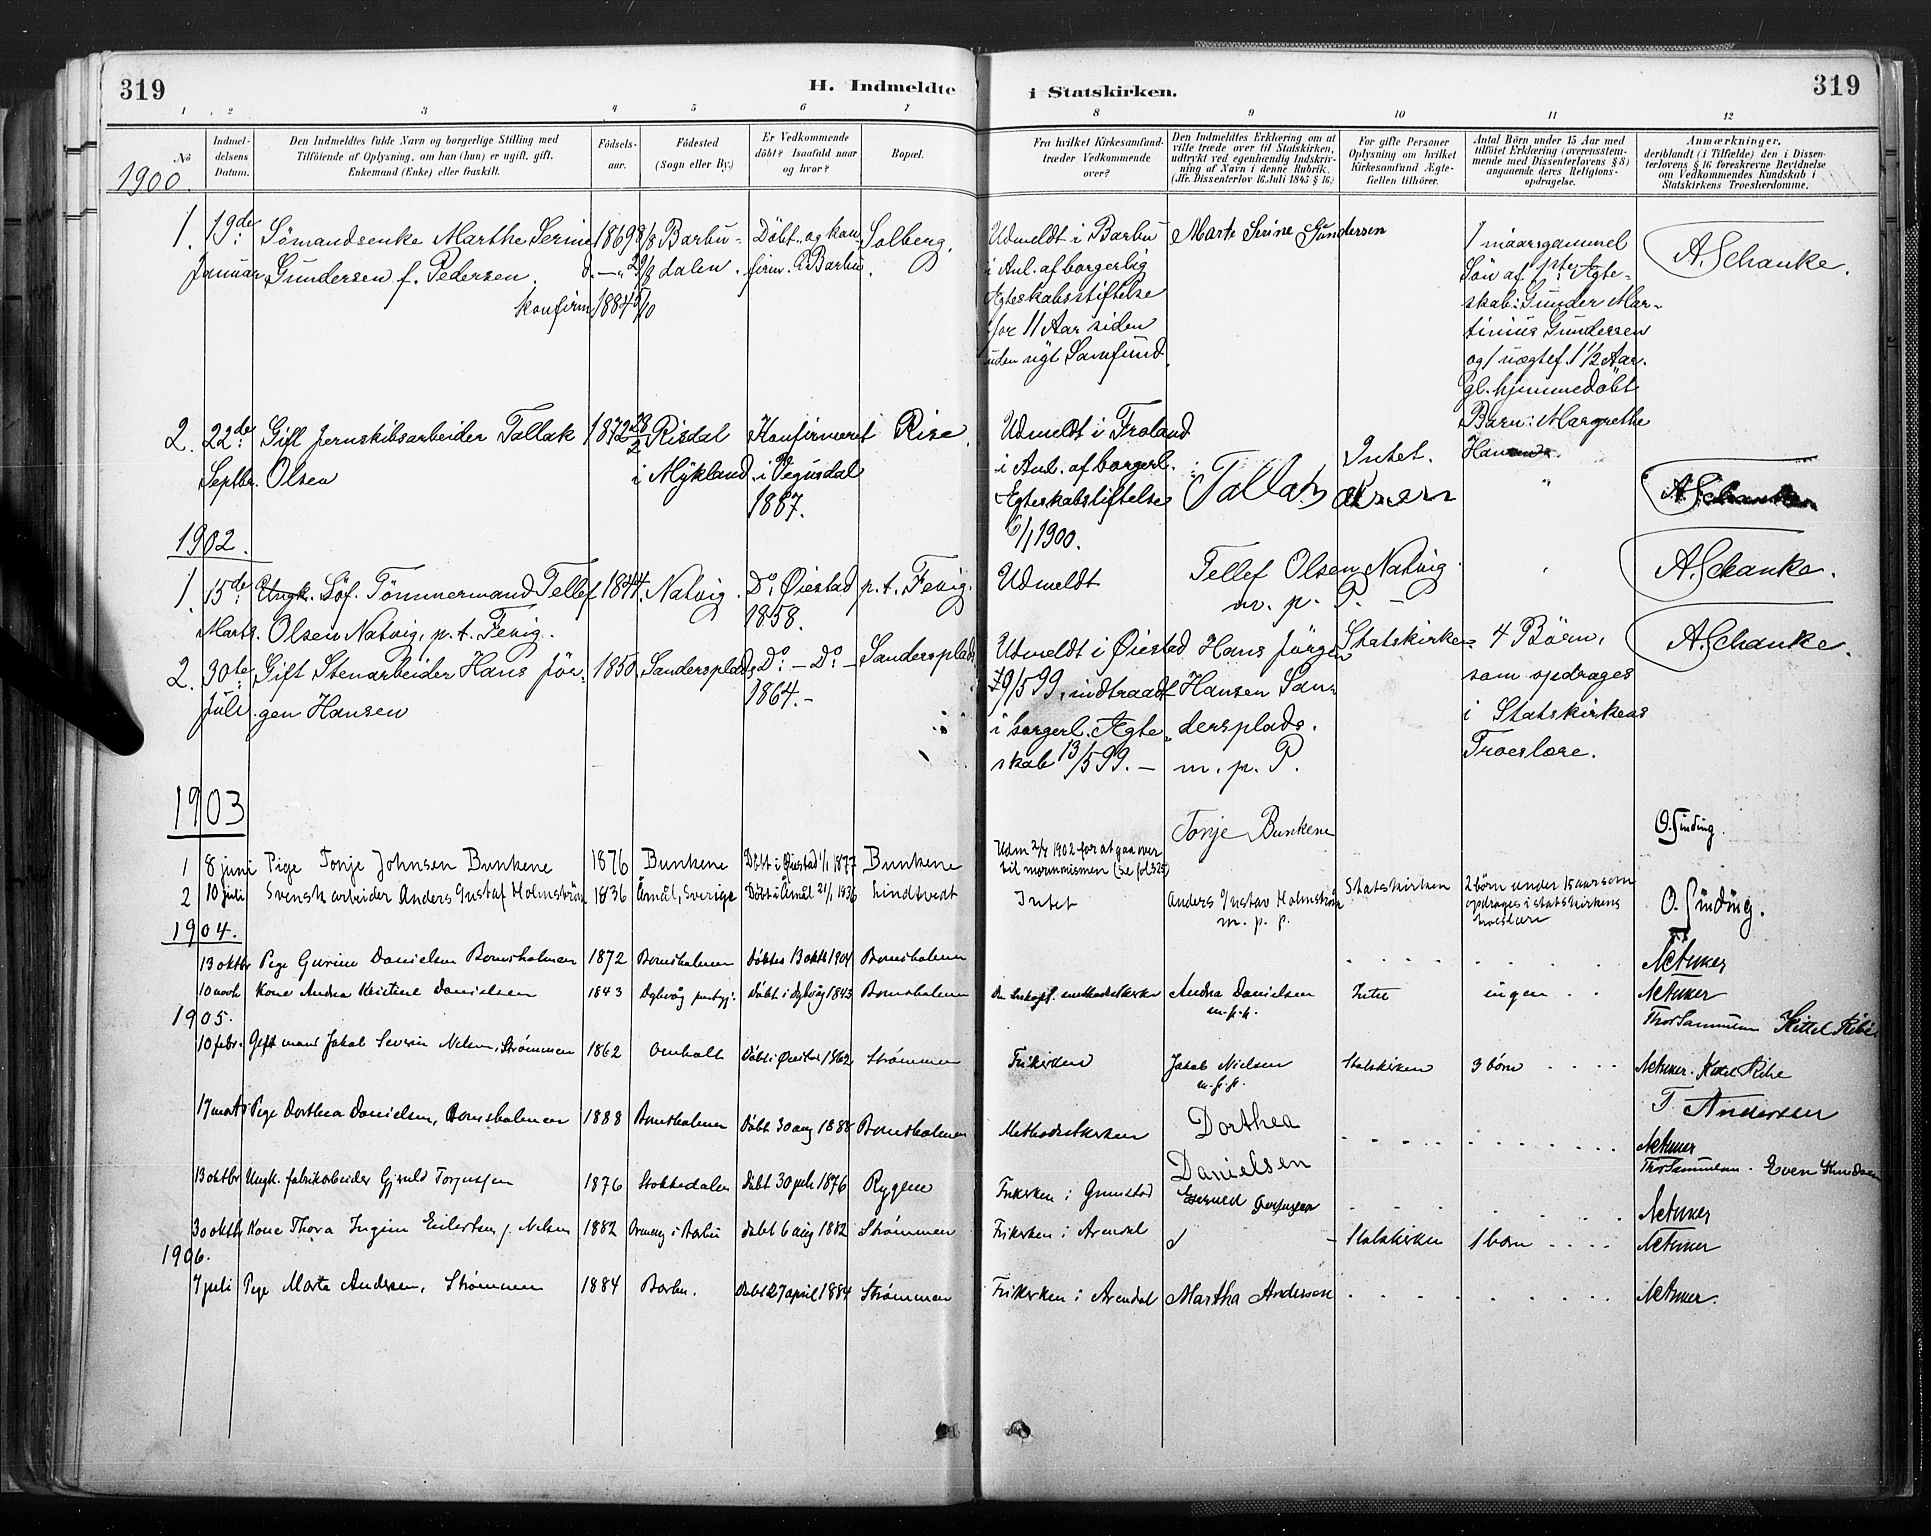 319
H. Indmeldte
i Statskirken.
319
1 2 3 4 5 6 7 8 9 10 11 12
No
Indmel-
delsens
Datum.
Den Indmeldtes fulde Navn og borgerlige Stilling med
Tilföiende af Oplysning, om han (hun) er ugift, gift,
Enkemand (Enke) eller fraskilt.
Födsels-
aar.
Födested
(Sogn eller By.)
Er Vedkommende
döbt? Isaafald naar
og hvor?
Bopæl.
Fra hvilket Kirkesamfund-
træder Vedkommende
over?
Den Indmeldtes Erklæring om at
ville træde over til Statskirken,
udtrykt ved egenhændig Indskriv-
ning af Navn i denne Rubrik.
(Jfr. Dissenterlov 16 Juli 1845 § 16.)
For gifte Personer
Oplysning om hvilket
Kirkesamfund Ægte-
fællen tilhörer.
Antal Börn under 15 Aar med
tilföiet Erklæring (overensstem-
mende med Dissenterlovens § 8)
angaaende deres Religions-
opdragelse.
Anmærkninger,
deriblandt (i Tilfælde) den i Dissen-
terlovens § 16 foreskrevne Bevidnelse
om Vedkommendes Kundskab i
Statskirkens Troeslærdomme.
1900.
1. 19de Januar
Sömandsenke Marthe Serine
Gundersen f. Pedersen.
konfirm. 1884 5/10
1869 8/8
d. — " 29/8
Barbu-
dalen.
Döbt og kon-
firm. i Barbu.
Solberg.
Udmeldt i Barbu
i Anl. af borgerlig
Egteskabsstiftelse
for 11 Aar siden
uden nyt Samfund.
Marte Serine Gundersen
1 maarsgammel
Sön af 1ste Ægte-
skab: Gunder Mar-
tinius Gundersen
og 1 uægtef. 1 1/2 Aar.
gl. hjemmedöbt
Barn: Margrethe
A. Schanke.
2. 22de Septbr.
Gift Jernskibsarbeider Tallak
Olsen
1872
Risdal
i Mykland.
Konfirmeret
i Vegusdal
1887.
Rise.
Udmeldt i Froland
i Anl. af borgerl.
Egteskabstiftelse
6/1 1900.
Tallak
Intet.
"
A. Schanke
1902.
1. 15de Marts.
Ungk. Söf. Tömmermand Tellef
Olsen Natvig, p.t. Fevig.
1844.
Natvig.
Do Øiestad
1858.
p.t. Fevig.
Udmeldt
Tellef Olsen Natvig.
m. p. P. —
A. Schanke.
2. 30te Juli
Gift Stenarbeider Hans Jör-
gen Hansen
1850.
Sandersplads
Do — Do —
1864. —
Sandersplads
Udmeldt i Øiestad
/5 99, indtraadt
i borgerl. Ægte-
skab 13/5 99. —
Hans Jörgen
Hansen San-
dersplads.
m. p. P.
Statskirken
4 Börn,
som opdrages
i Statskirkens
Troeslære.
A. Schanke.
1903
1 8 juni Pige Tonje Johnsen Bunkene 1876 Bunkene Döbt i Øiestad 1/1 1877 Bunkene
Udm 2/4 1902 for at gaa over
til mormonismen (se fol 325)
Tonje Bunkene
O. Sinding.
2 10 juli Svensk arbeider Anders Gustaf Holmström 1836 Åmål, Sverige Döbt i Åmål 21/1 1836 Lindtvedt
Intet
Anders Gustav Holmström
m. p. p.
Statskirken
2 börn under 15 aar som
opdrages i statskirkens
troeslære
O. Sinding.
1904.
13 oktbr Pige Gurine Danielsen Bomsholmen 1872 Bomsholmen Döbtes 13 oktb 1904 Bomsholmen
10 novb Kone Andrea Kristine Danielsen 1843 Dybvåg Döbt i Dybvåg 1843 Bomsholmen
Andrea Danielsen
m.p.p.
Intet
ingen
1905.
10 febr. Gift mand Jakob Severin Nielsen, Strømmen 1862 Omholt Döbt i Øiestad 1862 Strømmen
Frikirken
Jakob Nielsen
m.p.p.
Statskirken
3 börn
17 marts Pige Dorthea Danielsen, Bomsholmen 1888 Bomsholmen Döbt 30 aug 1888 Bomsholmen
Methodistkirken
Dorthea
Danielsen
T Andersen
13 oktbr Ungk. fabrikarbeider Gjeruld Torjussen 1876 Stokkedalen Döbt 30 juli 1876 Rygene
Frikirken i Grimstad
30 oktbr Kone Thora Ingine Eilertsen f. Nielsen 1882 Barbu döbt 6 aug 1882 Strømmen
Frikirken i Arendal
Statskirken
1 barn
1906.
7 juli Pige Marta Andersen, Strømmen 1884 Barbu. Döbt 27 april 1884 Strømmen
Frikirken i Arendal
Martha Andersen